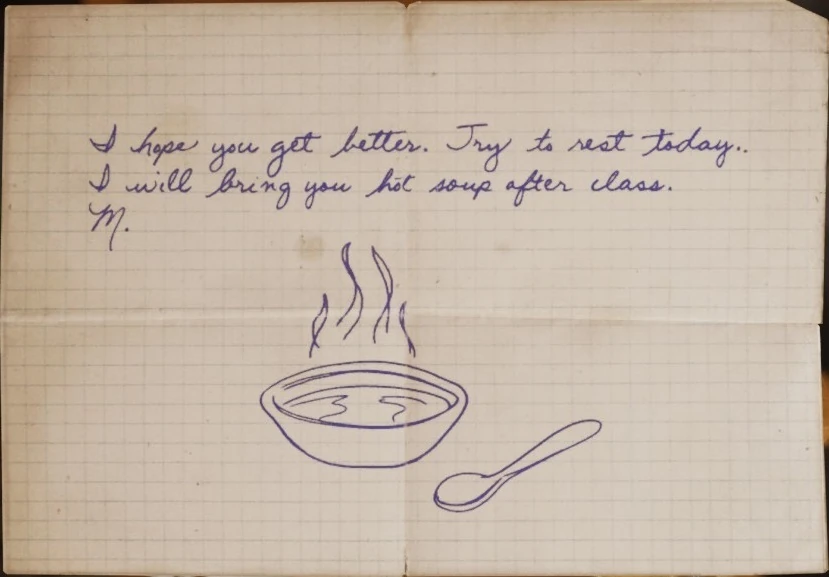 I hope you get better. Try to rest today..
I will bring you hot soup after class.
M.